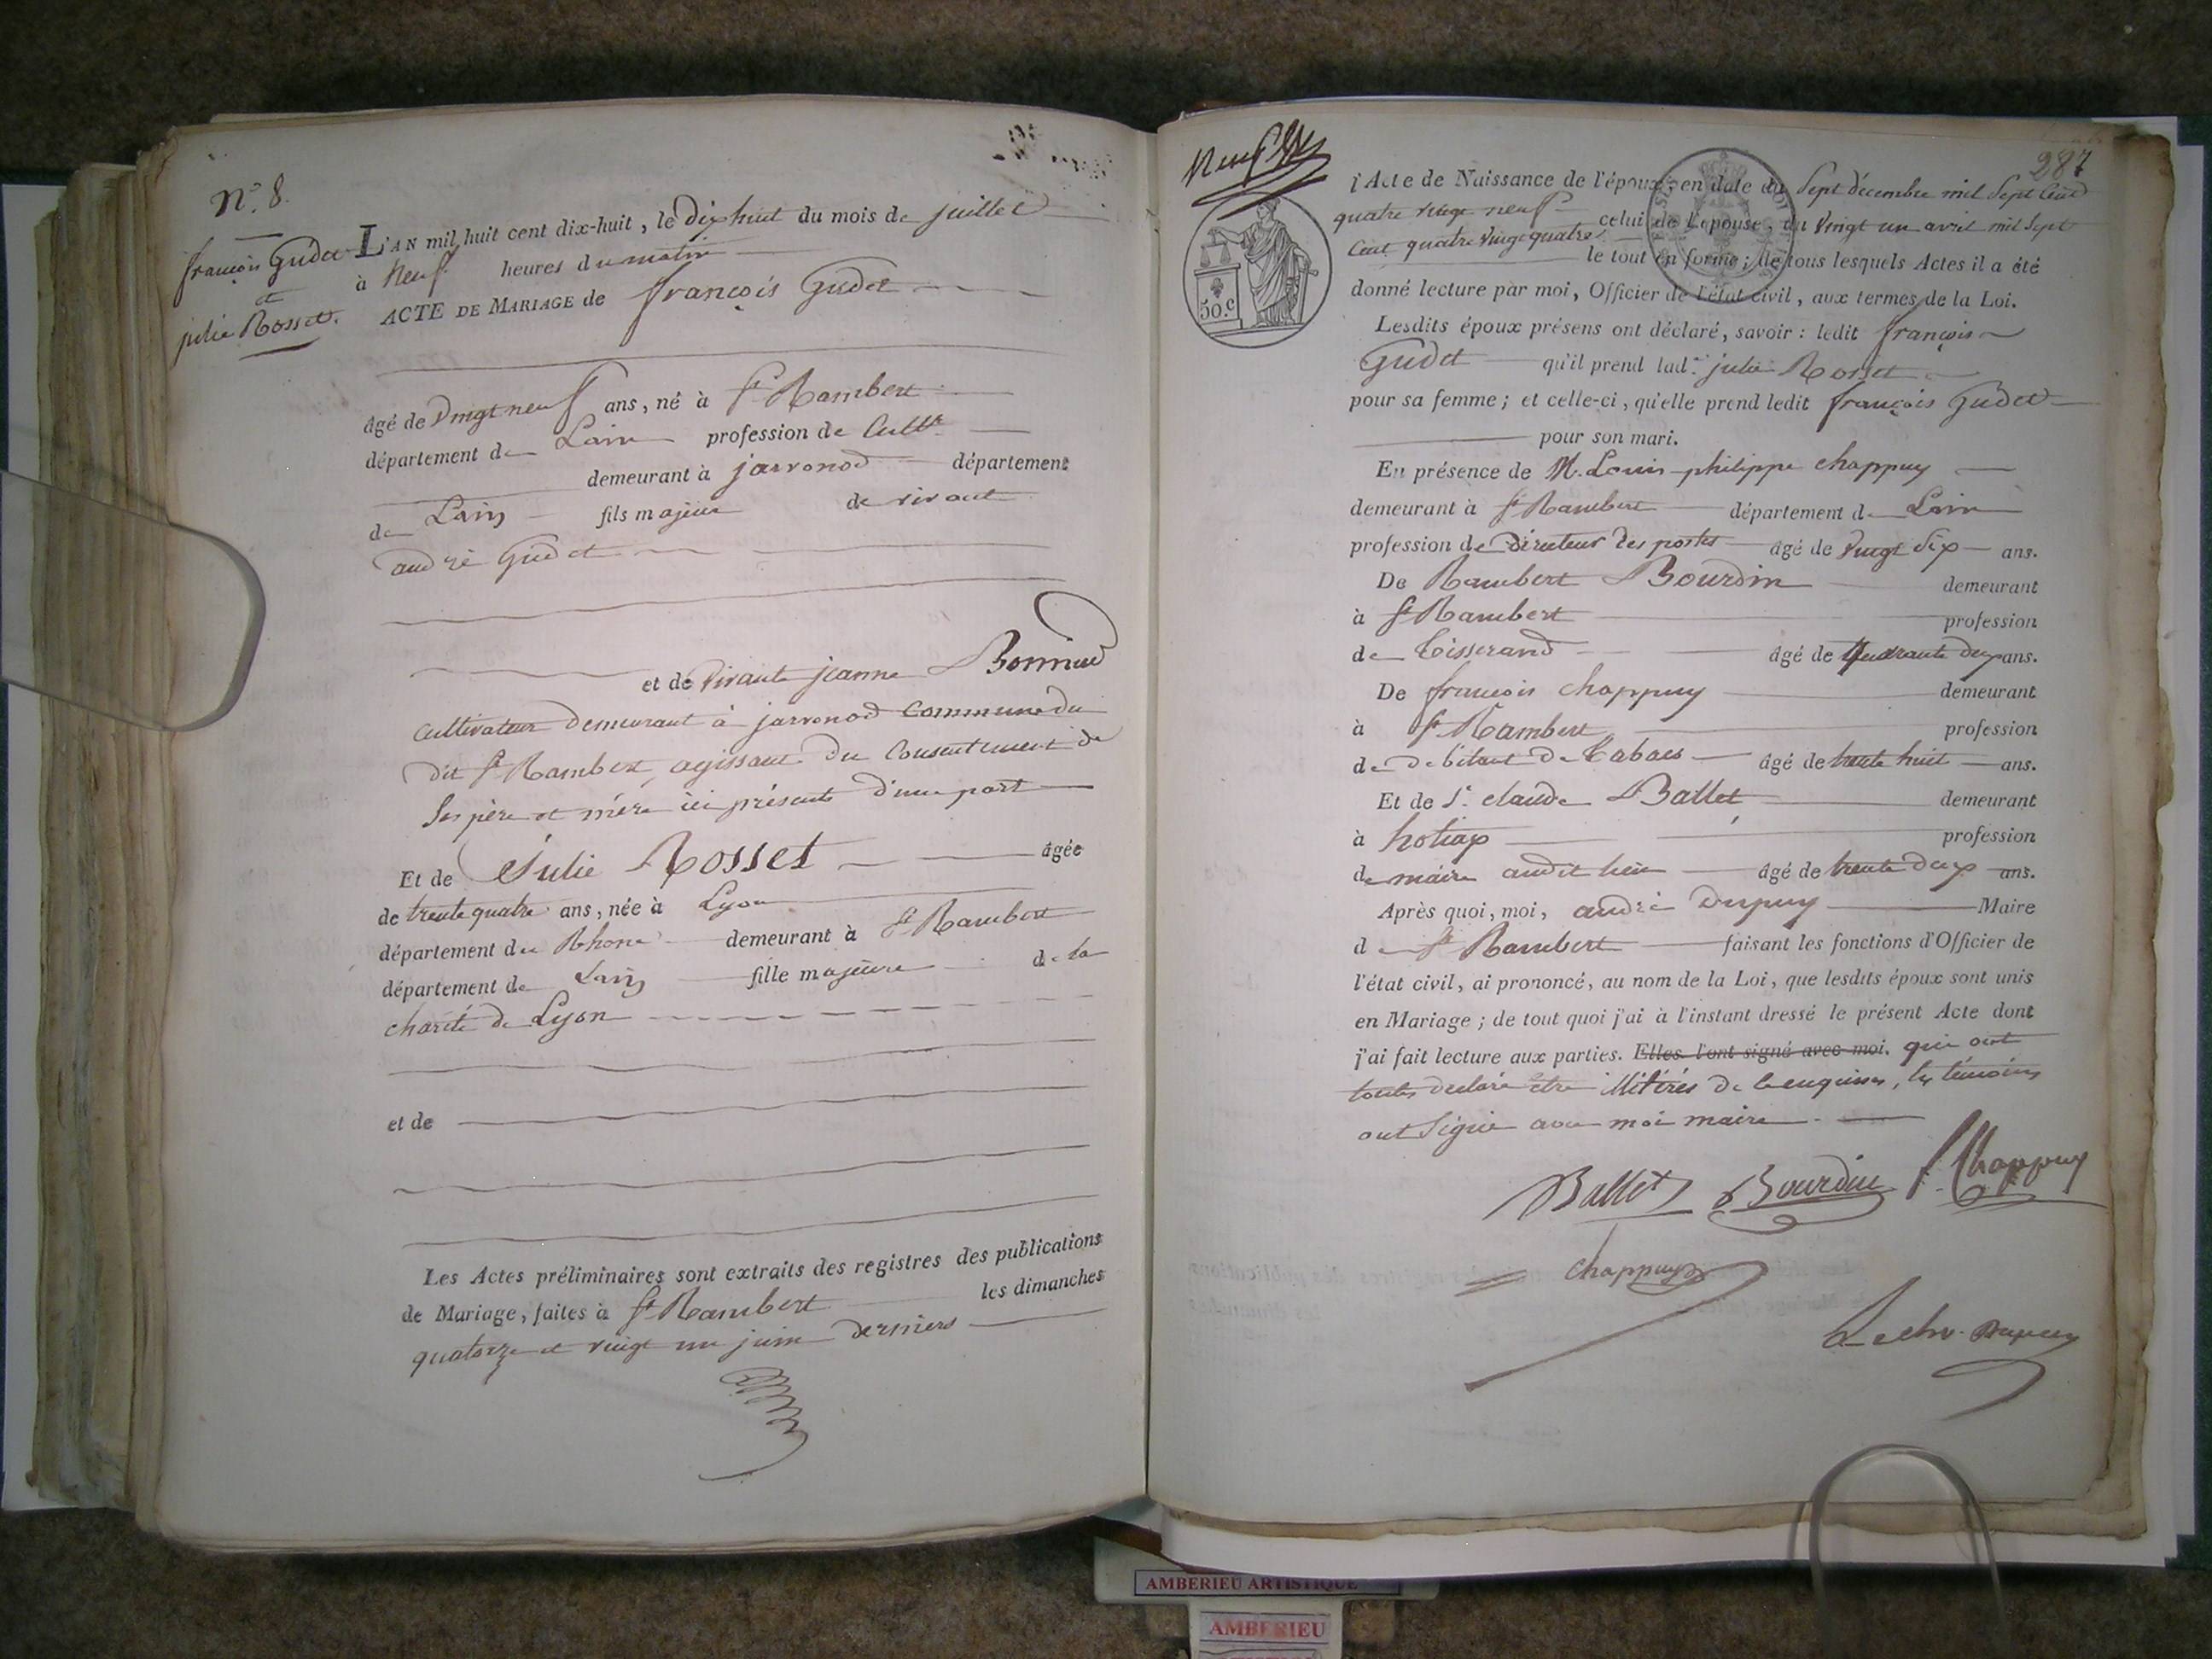 N.° 8.
françois Gudet
et
julie Rosset.
L'AN mil huit cent dix-huit, le dix huit du mois de juillet
à Neuf heures du matin
ACTE DE MARIAGE de françois Gudet
âgé de vingt neuf ans, né à St Rambert
département de Lain profession de Cultr
demeurant à jarvonod département
de Lain fils majeur de vivant
andré Gudet
et de vivante jeanne
cultivateur demeurant à jarvonod commune du
dit St Rambert, agissant du Consentement de
ses père et mère ici présents d'une part
Et de Julie Rosset âgée
de trente quatre ans, née à Lyon
département du Rhone demeurant à St Rambert
département de Lain fille majeure de la
charité de Lyon
et de
Les Actes préliminaires sont extraits des registres des publications
de Mariage, faites à St Rambert les dimanches
quatorze et vingt un juin derniers
287
l'Acte de Naissance de l'époux, en date du Sept décembre mil Sept Cent
quatre vingt neuf celui de l'épouse, du vingt un avril mil Sept
Cent quatre vingt quatre
le tout en forme; de tous lesquels Actes il a été
donné lecture par moi, Officier de l'état civil, aux termes de la Loi.
50.c
Lesdits époux présens ont déclaré, savoir: ledit françois
Gudet qu'il prend lad.e julie Rosset
pour sa femme; et celle-ci, qu'elle prend ledit françois Gudet
pour son mari.
En présence de M. Louis philippe chappuy
demeurant à St Rambert département de Lain
profession de Directeur des postes âgé de vingt Six ans.
De Rambert Bourdin demeurant
à St Rambert profession
de Tisserand âgé de quarante deux ans.
De françois chappuy demeurant
à St Rambert profession
de débitant de Tabacs âgé de trente huit ans.
Et de Sr claude Ballet demeurant
à hotiax profession
de maire audit lieu âgé de trente deux ans.
Après quoi, moi, andré Dupuy Maire
de St Rambert faisant les fonctions d'Officier de
l'état civil, ai prononcé, au nom de la Loi, que lesdits époux sont unis
en Mariage; de tout quoi j'ai à l'instant dressé le présent Acte dont
j'ai fait lecture aux parties. Elles l'ont signé avec moi. qui ont
toutes declaré être illitérés de ce enquises, les témoins
ont Signé avec moi maire
Ballet Bourdin f. Chappuy
chappuy
Dupuy
AMBERIEU ARTISTIQUE
AMBERIEU